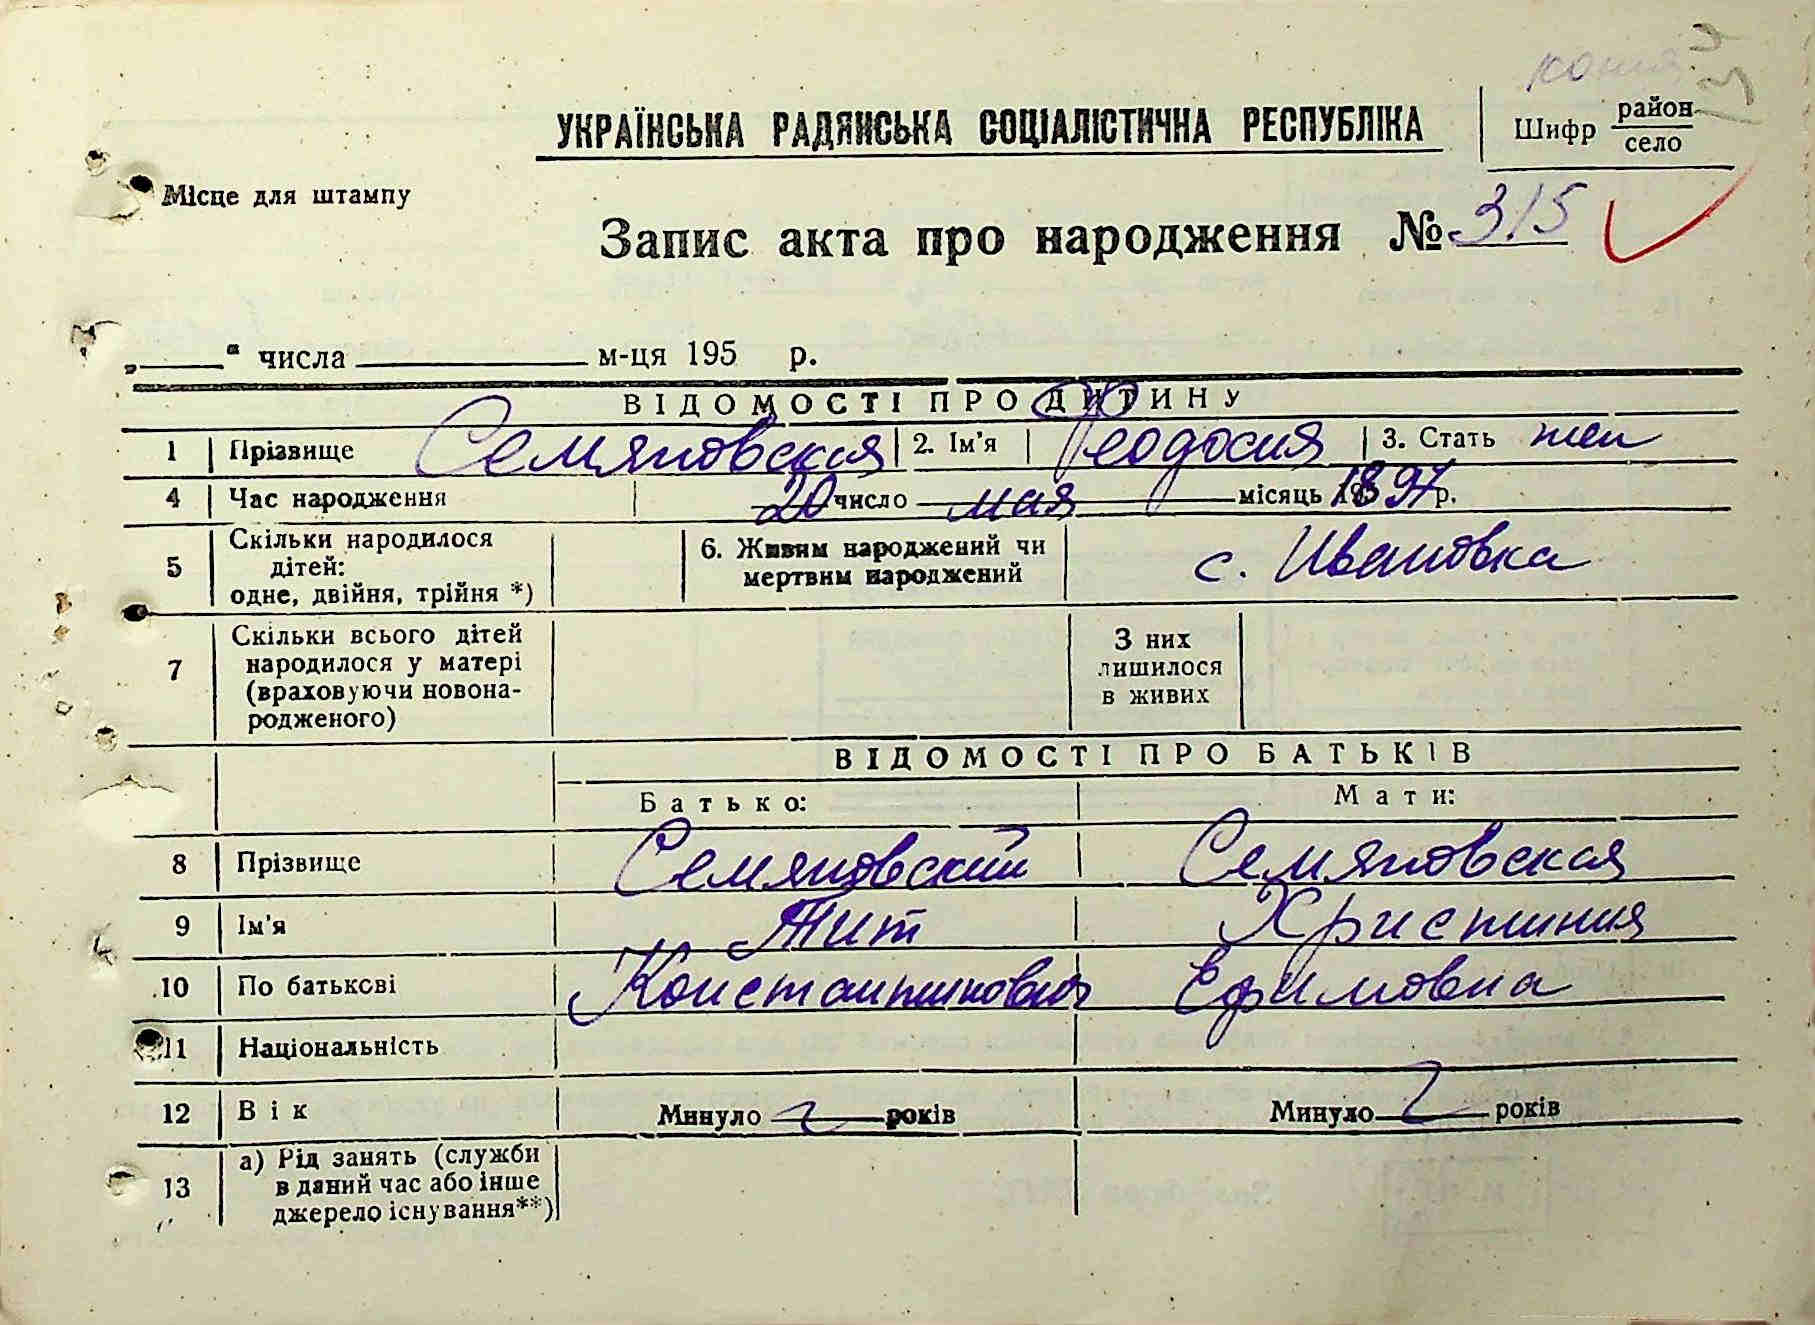 копия
УКРАЇНСЬКА РАДЯНСЬКА СОЦІАЛІСТИЧНА РЕСПУБЛІКА
Шифр район
село
Місце для штампу
Запис акта про народження № 315
„ “ числа м-ця 195 р.
ВІДОМОСТІ ПРО ДИТИНУ
1 Прізвище Семяновская 2. Ім'я Феодосия 3. Стать жен
4 Час народження 20 число мая місяць 1897 р.
5 Скільки народилося дітей: одне, двійня, трійня *) 6. Живим народжений чи мертвим народжений с. Ивановка
7 Скільки всього дітей народилося у матері (враховуючи новонародженого) З них лишилося в живих
ВІДОМОСТІ ПРО БАТЬКІВ
Батько: Мати:
8 Прізвище Семяновский Семяновская
9 Ім'я Тит Христиния
10 По батькові Константинович Ефимовна
11 Національність
12 Вік Минуло років Минуло років
13 а) Рід занять (служби в даний час або інше джерело існування**)